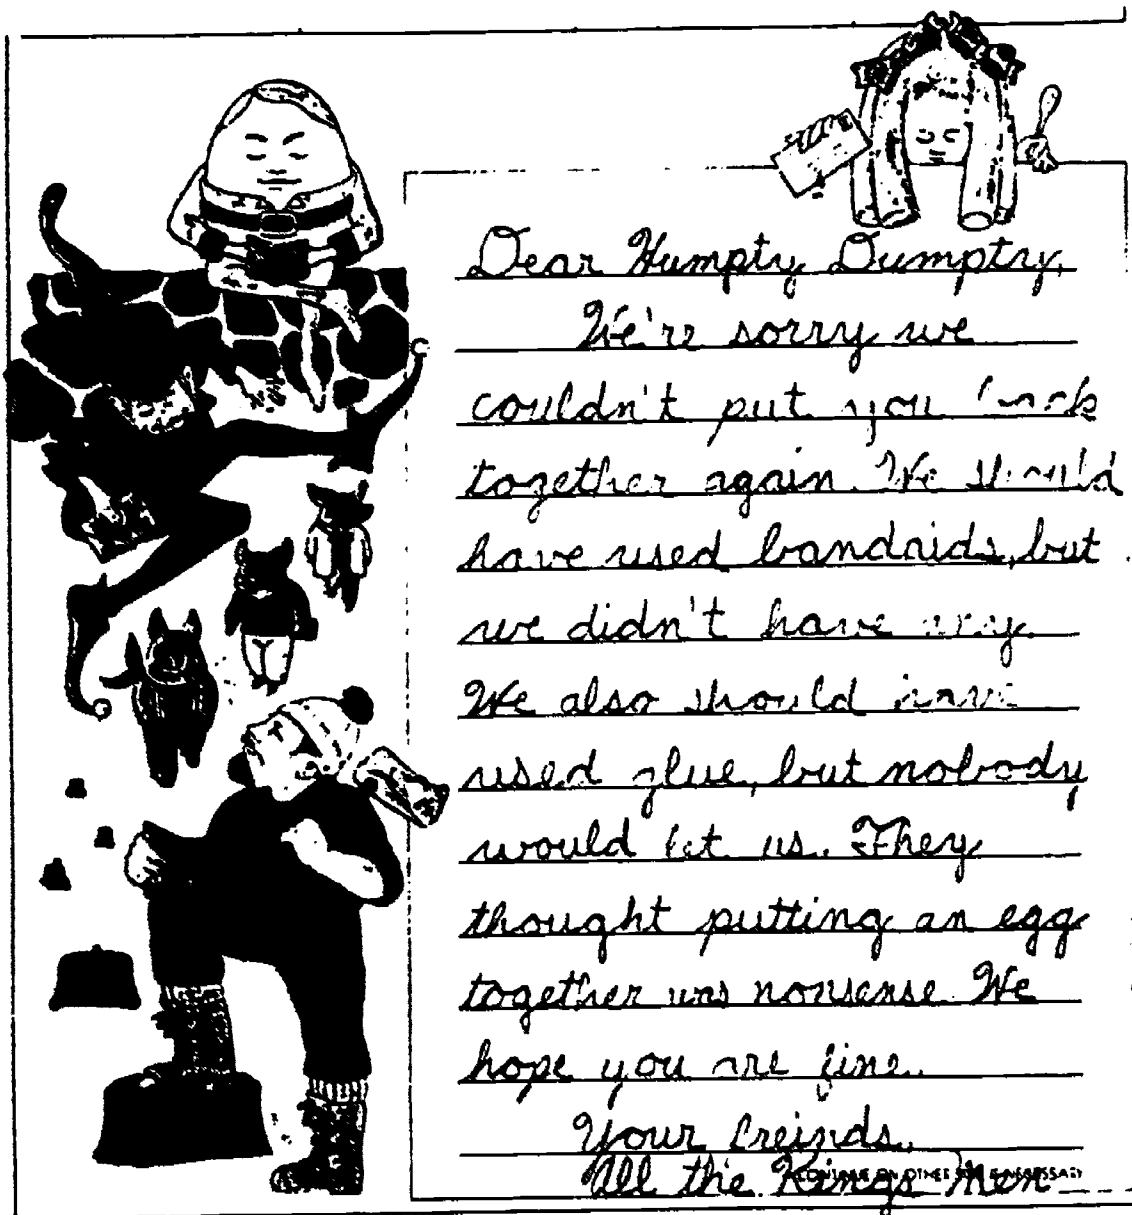 Dear Humpty Dumptry,
We're sorry we
couldn't put you back
together again. We should
have used bandaids, but
we didn't have any.
We also should have
used glue, but nobody
would let us. They
thought putting an egg
together was nonsense. We
hope you are fine.
Your freinds,
CONTINUE ON OTHER SIDE IF NECESSARY
All the Kings Men